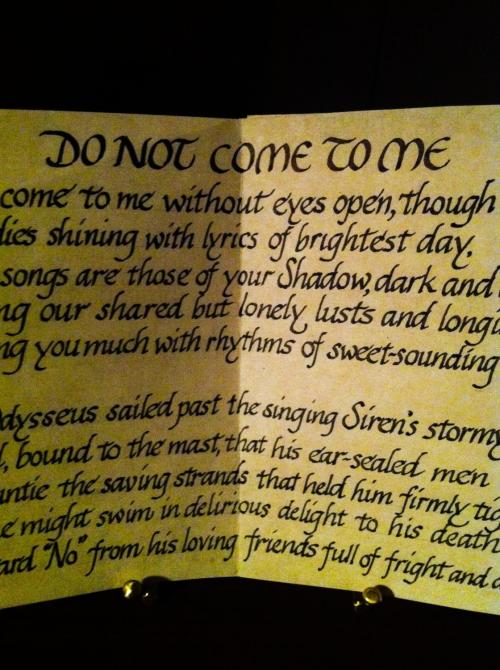 DO NOT COME TO ME
come to me without eyes open, though
dies shining with lyrics of brightest day.
songs are those of your Shadow, dark and
ng our shared but lonely lusts and longi
ng you much with rhythms of sweet-sounding
dysseus sailed past the singing Siren's stormy
, bound to the mast, that his ear-sealed men
untie the saving strands that held him firmly tie
e might swim in delirious delight to his death
ard "No" from his loving friends full of fright and